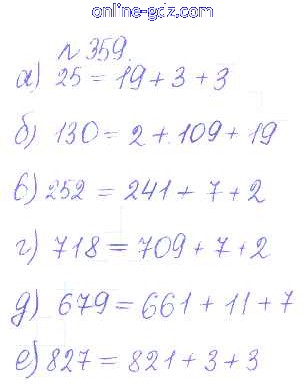 online-gdz.com
№359.
а) 25 = 19 + 3 + 3
б) 130 = 2 + 109 + 19
в) 252 = 241 + 7 + 2
г) 718 = 709 + 7 + 2
д) 679 = 661 + 11 + 7
е) 827 = 821 + 3 + 3